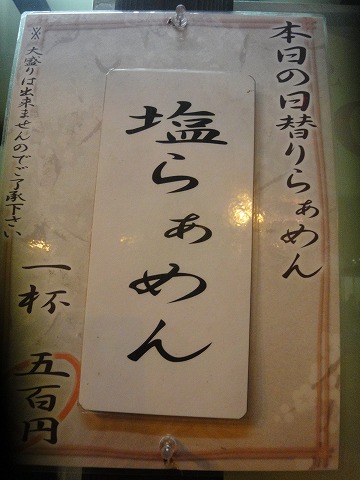 本日の日替りらぁめん
塩らぁめん
※大盛りは出来ませんのでご了承下さい
一杯
五百円